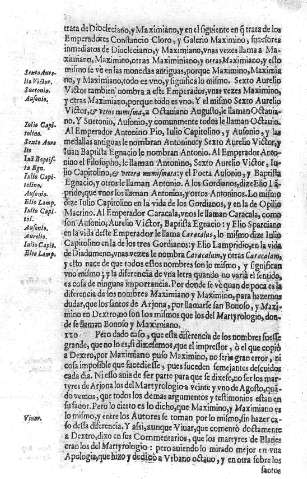 trata de Diocleciano, y Maximiano, y en el siguiente en q̃ trata de los
Emperadores Constancio Cloro, y Galerio Maximo, successores
inmediatos de Diocleciano, y Maximiano, vnas vezes llama a Ma-
ximiano, Maximino, otras Maximiniano, y otras Maximiano, y esto
mismo se vè en las monedas antiguas, porque Maximino, Maximia
no, y Maximiniano, todo es vno, y significa lo mismo. Sexto Aurelio
Victor tambien nombra a este Emperador, vnas vezes Maximiano,
y otras Maximino, porque todo es vno. Y el mismo Sexto Aurelio
Victor, & vetera numismata, a Octauiano Augusto, le llaman Octauia-
no, Y Suetonio, Ausonio, y comunmente todos le llaman Octauio.
Al Emperador Antonino Pio, Iulio Capitolino, y Ausonio, y las
medallas antiguas le nombran Antonino; y Sexto Aurelio Victor, y
Iuan Baptista Egnacio le nombran Antonio. Al Emperador Antoni
no el Filosopho, le llaman Antonino, Sexto Aurelio Victor, Iu-
lio Capitolino, & vetera numismata; y el Poeta Ausonio, y Baptista
Egnacio, y otros le llaman Antonio. A los Gordianos, dize Elio Lã-
pridio, que vnos los llaman Antonios, y otros Antoninos. Lo mismo
dize Iulio Capitolino en la vida de los Gordianos, y en la de Opilio
Macrino. Al Emperador Caracala, vnos le llaman Caracala, como
son Ausonio, Aurelio Victor, Baptista Egnacio; y Elio Sparciano
en la vida deste Emperador le llama Caracalus, lo mismo dize Iulio
Capitolino en la de los tres Gordianos; y Elio Lampridio, en la vida
de Diadumeno, vnas vezes le nombra Caracalum, y otras Caracalam,
y esto nace de que todos estos nombres son lo mismo, y significan
vno mismo; y la diferencia de vna letra quando no varia el sentido,
es cosa de ninguna importancia. Por donde se vè quan de poca es la
diferencia de los nombres Maximiano, y Maximino, para hazernos
dudar, que los santos de Arjona, por llamarse san Bonoso, y Maxi-
mino en Dextro, no son los mismos que los del Martyrologio, don-
de se llaman Bonoso y Maximiano.
xxo Pero dado caso, que esta diferencia de los nombres fuesse
grande, que no lo es, si dixessemos, que el impressor, ò el que copiò
a Dextro, por Maximiano puso Maximino, no seria gran error, ni
cosa impossible que sucediesse, pues suceden semejantes descuidos
cada dia. Ni esso auia de ser parte para que se dixesse, no ser los mar-
tyres de Arjona los del Martyrologio a veinte y vno de Agosto, quã-
do vemos, que todos los demas argumentos y testimonios estan en
su fauor. Pero lo cierto es lo dicho, que Maximino, y Maximiano es
lo mismo, y entre los Autores se toman por lo mismo, sin hazer ca-
so dessa diferencia. Y assi, aunque Viuar, que comentò doctamente
a Dextro, dixo en sus Commentarios, que los martyres de Blacie
eran los del Martyrologio: pero auiendo lo mirado mejor en vna
Apologia, que hizo y dedicò a Vrbano octauo, y en otra sobre los
santos
Sexto Aure-
lio Victor.
Suetonio.
Ausonio.
Iulio Capi-
tolino.
Sexto Aure
lio
Iuã Baptis-
ta Egn.
Iulio Capi.
Ausonio.
Elio Lamp.
Iulio Capi-
tol.
Ausonio.
Aurelio.
Iulio Capit.
Elio Lamp.
Viuar.